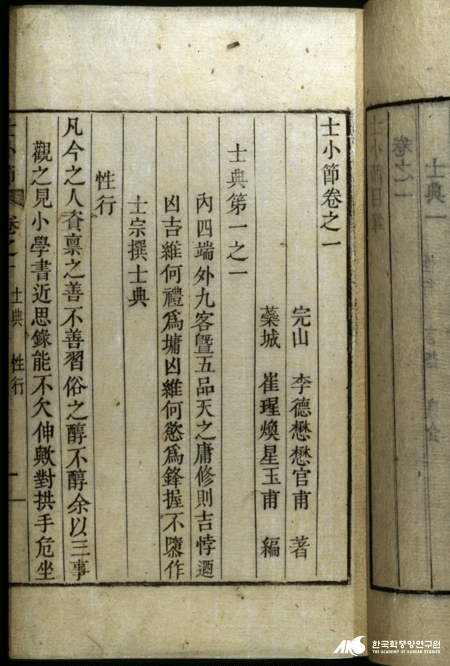 士小節卷之一
完山 李德懋懋官甫 著
藥城 崔瑆煥星玉甫 編
士典第一之一
內四端外九容曁五品天之庸修則吉悖迺
凶吉維何禮爲墉凶維何慾爲鋒握不隳作
士宗撰士典
性行
凡今之人資稟之善不善習俗之醇不醇余以三事
觀之見小學書近思錄能不欠伸歟對拱手危坐
士小節 卷之一 士典 性行 一
士小節目
卷之一
士典一
한국학중앙연구원
THE ACADEMY OF KOREAN STUDIES
AKS